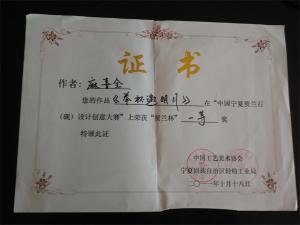 证书
作者：麻喜全
您的作品《举杯邀明月》在“中国宁夏贺兰石
（砚）设计创意大赛”上荣获“贺兰杯”一等奖
特颁此证
中国工艺美术协会
宁夏回族自治区轻纺工业局
二〇一一年十月十八日